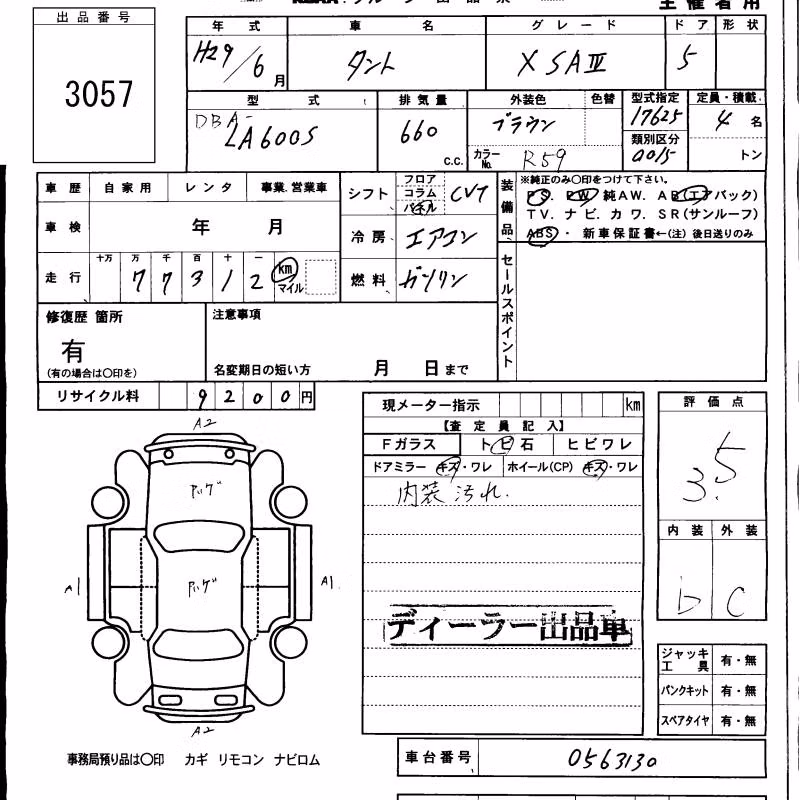 出品番号
主催者用
3057
年式 車名 グレード ドア 形状
H29/6月 タント X SAⅣ 5
型式 排気量 外装色 色替 型式指定 定員・積載
DBA- LA600S 660 C.C. ブラウン 17625 4名
類別区分
カラーNo. R59 0015 トン
車歴 自家用 レンタ 事業.営業車
シフト フロア コラム パネル CVT
装備品
※純正のみ〇印をつけて下さい。
PS. PW. 純AW. AB(エアバック)
TV. ナビ. カワ. SR(サンルーフ)
ABS・ 新車保証書←(注) 後日送りのみ
車検 年 月
冷房 エアコン
走行 十万 万 千 百 十 一
77312 km マイル
燃料 ガソリン
セールスポイント
修復歴 箇所
有
(有の場合は〇印を)
注意事項
名変期日の短い方 月 日まで
リサイクル料 9200円
現メーター指示 km
評価点
3.5
【査定員記入】
Fガラス トビ石 ヒビワレ
ドアミラー キズ・ワレ ホイール(CP) キズ・ワレ
内装汚れ.
内装 外装
D C
A2
A1 A1
A2
ディーラー出品車
ジャッキ工具 有・無
パンクキット 有・無
スペアタイヤ 有・無
事務局預り品は〇印 カギ リモコン ナビロム
車台番号 0563130